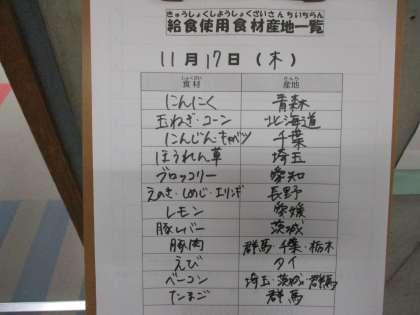 きゅうしょくしようしょくざいさんちいちらん
給食使用食材産地一覧
11月17日(木)
しょくざい さんち
食材 産地
にんにく 青森
玉ねぎ・コーン 北海道
にんじん・キャベツ 千葉
ほうれん草 埼玉
ブロッコリー 愛知
えのき・しめじ・エリンギ 長野
レモン 愛媛
豚レバー 茨城
豚肉 群馬・千葉・栃木
えび タイ
ベーコン 埼玉・茨城・群馬
たまご 群馬